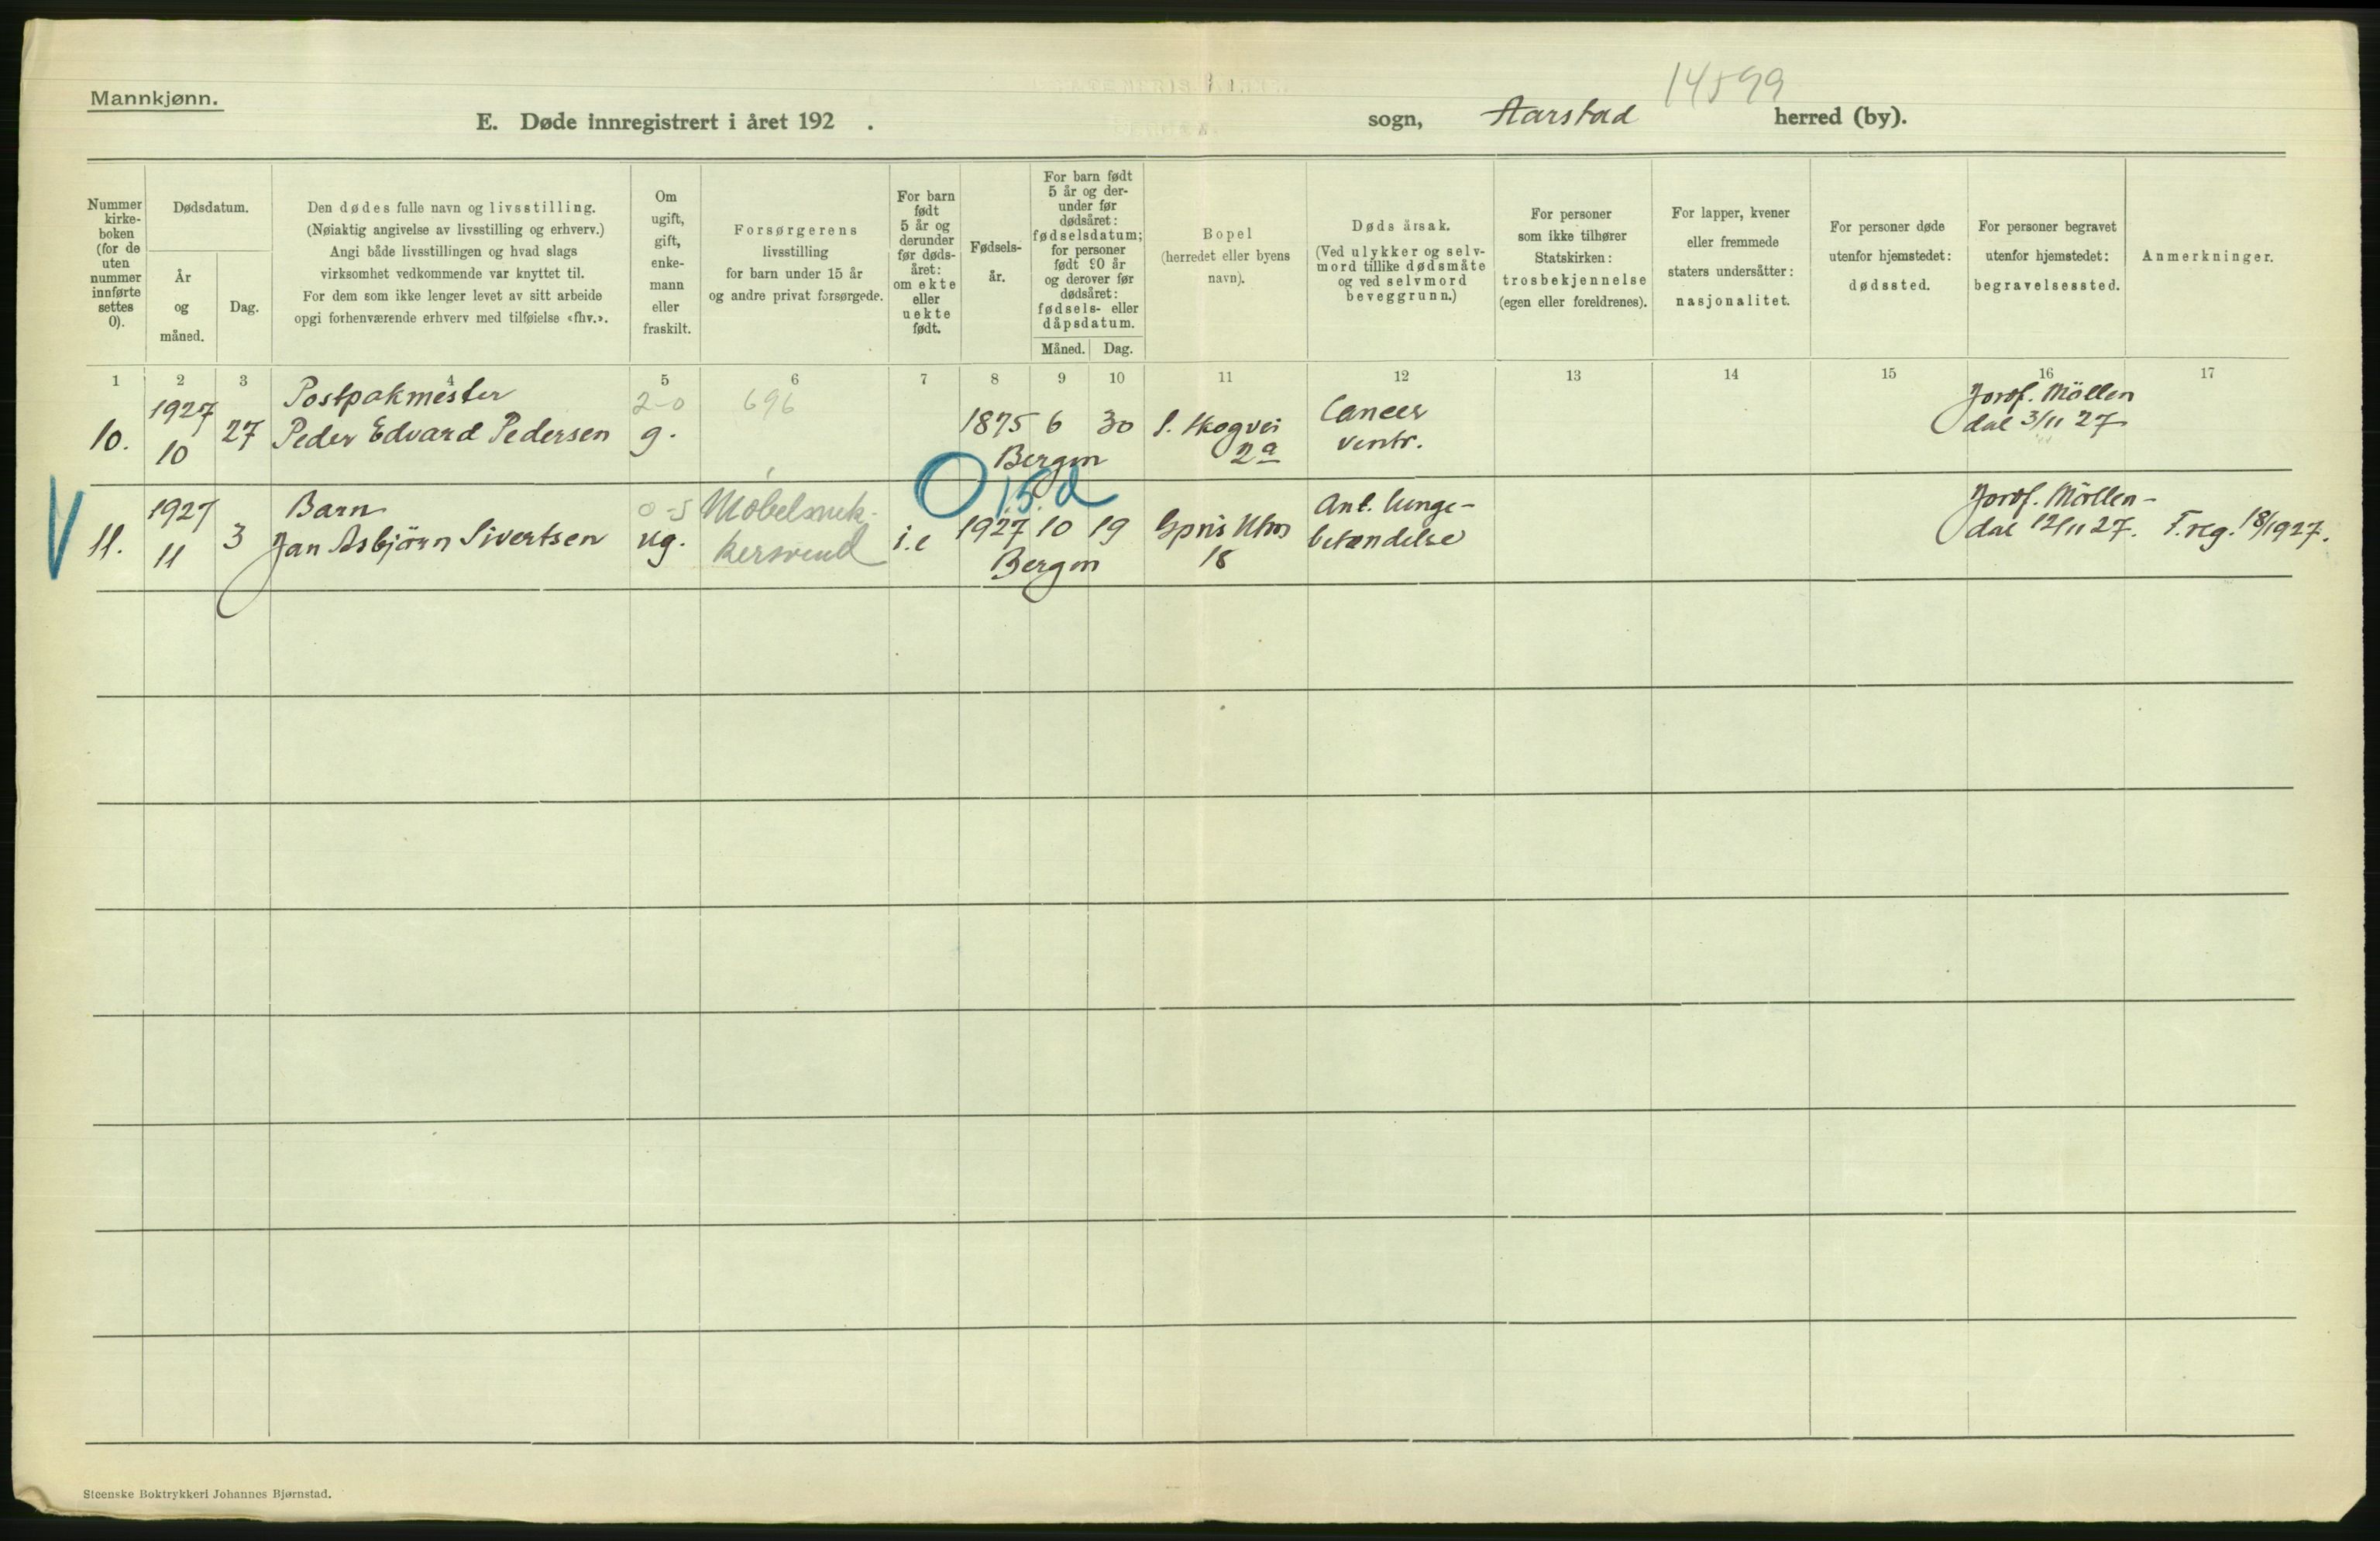 Mannkjønn.
14599
E. Døde innregistrert i året 192 . sogn, Aarstad herred (by).
Nummer kirke- boken (for de uten nummer innførte settes 0).
Dødsdatum.
År og måned.
Dag.
Den dødes fulle navn og livsstilling.
(Nøiaktig angivelse av livsstilling og erhverv.)
Angi både livsstillingen og hvad slags
virksomhet vedkommende var knyttet til.
For dem som ikke lenger levet av sitt arbeide
opgi forhenværende erhverv med tilføielse «fhv.».
Om
ugift,
gift,
enke-
mann
eller
fraskilt.
Forsørgerens
livsstilling
for barn under 15 år
og andre privat forsørgede.
For barn
født
5 år og
derunder
før døds-
året:
om ekte
eller
uekte
født.
Fødsels-
år.
For barn født
5 år og der-
under før
dødsåret:
fødselsdatum;
for personer
født 90 år
og derover før
dødsåret:
fødsels- eller
dåpsdatum.
Måned. Dag.
Bopel
(herredet eller byens
navn).
Døds årsak.
(Ved ulykker og selv-
mord tillike dødsmåte
og ved selvmord
beveggrunn.)
For personer
som ikke tilhører
Statskirken:
trosbekjennelse
(egen eller foreldrenes).
For lapper, kvener
eller fremmede
staters undersåtter:
nasjonalitet.
For personer døde
utenfor hjemstedet:
dødssted.
For personer begravet
utenfor hjemstedet:
begravelsessted.
Anmerkninger.
1 2 3 4 5 6 7 8 9 10 11 12 13 14 15 16 17
1927 Postpakmester 2-0 696 Cancer Jordf. Möllen
10. 10 27 Peder Edvard Pedersen g. 1875 6 30 S. Skogvei ventr. dal 3/11 27
Bergen 2a
15 d
1927 Barn 0-5 Møbelsnek- Ant. lunge- Jordf. Möllen-
11. 11 3 Jan Asbjörn Sivertsen ug. kersvend i.e 1927 10 19 betændelse dal 12/11 27. F.reg. 18/1927.
Bergen 18
Steenske Boktrykkeri Johannes Bjørnstad.